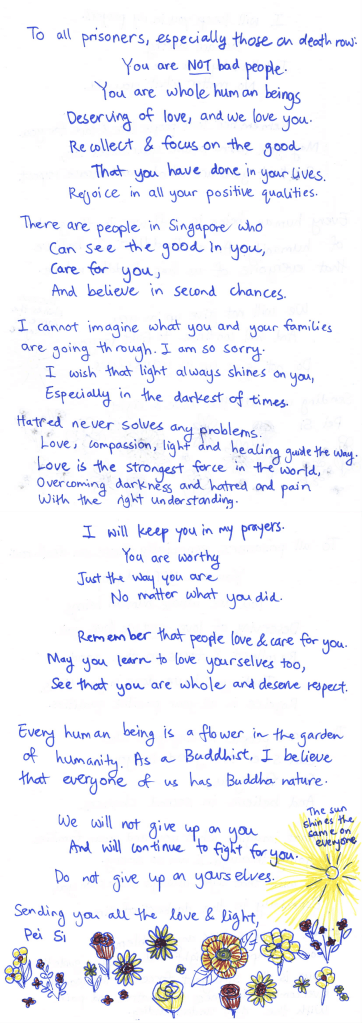 To all prisoners, especially those on death row:
You are NOT bad people.
You are whole human beings
Deserving of love, and we love you.
Recollect & focus on the good
That you have done in your lives.
Rejoice in all your positive qualities.
There are people in Singapore who
Can see the good in you,
Care for you,
And believe in second chances.
I cannot imagine what you and your families
are going through. I am so sorry.
I wish that light always shines on you,
Especially in the darkest of times.
Hatred never solves any problems.
Love, compassion, light and healing guide the way.
Love is the strongest force in the world,
Overcoming darkness and hatred and pain
With the right understanding.
I will keep you in my prayers.
You are worthy
Just the way you are
No matter what you did.
Remember that people love & care for you.
May you learn to love yourselves too,
See that you are whole and deserve respect.
Every human being is a flower in the garden
of humanity. As a Buddhist, I believe
that everyone of us has Buddha nature.
The sun
shines the
same on
everyone
We will not give up on you
And will continue to fight for you.
Do not give up on yourselves.
Sending you all the love & light,
Pei Si